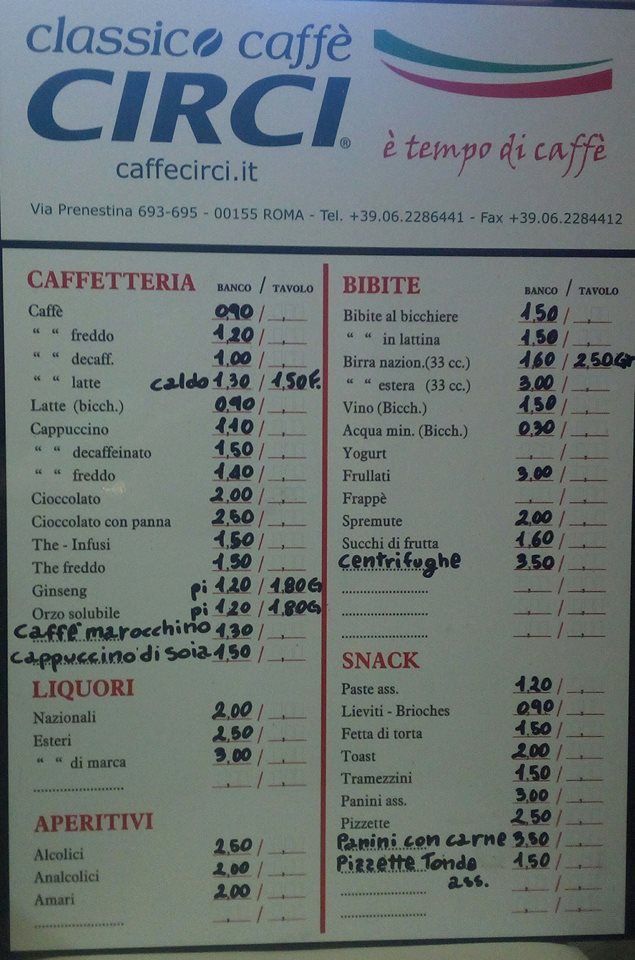 classico caffè
CIRCI®
caffecirci.it
è tempo di caffè
Via Prenestina 693-695 - 00155 ROMA - Tel. +39.06.2286441 - Fax +39.06.2284412
CAFFETTERIA BANCO / TAVOLO
Caffè 0,90 /
“ “ freddo 1,20 /
“ “ decaff. 1,00 /
“ “ latte caldo 1,30 / 1,50 F.
Latte (bicch.) 0,90 /
Cappuccino 1,10 /
“ “ decaffeinato 1,50 /
“ “ freddo 1,40 /
Cioccolato 2,00 /
Cioccolato con panna 2,50 /
The - Infusi 1,50 /
The freddo 1,50 /
Ginseng pi 1,20 / 1,80 G
Orzo solubile pi 1,20 / 1,80 G
Caffè marocchino 1,30 /
cappuccino di soia 1,50 /
LIQUORI
Nazionali 2,00 /
Esteri 2,50 /
“ “ di marca 3,00 /
APERITIVI
Alcolici 2,50 /
Analcolici 2,00 /
Amari 2,00 /
BIBITE BANCO / TAVOLO
Bibite al bicchiere 1,50 /
“ “ in lattina 1,50 /
Birra nazion.(33 cc.) 1,60 / 2,50 Gr
“ “ estera (33 cc.) 3,00 /
Vino (Bicch.) 1,50 /
Acqua min. (Bicch.) 0,30 /
Yogurt /
Frullati 3,00 /
Frappè /
Spremute 2,00 /
Succhi di frutta 1,60 /
centrifughe 3,50 /
SNACK
Paste ass. 1,20 /
Lieviti - Brioches 0,90 /
Fetta di torta 1,50 /
Toast 2,00 /
Tramezzini 1,50 /
Panini ass. 3,00 /
Pizzette 2,50 /
Panini con carne 3,50 /
Pizzette Tonde 1,50 /
ass.